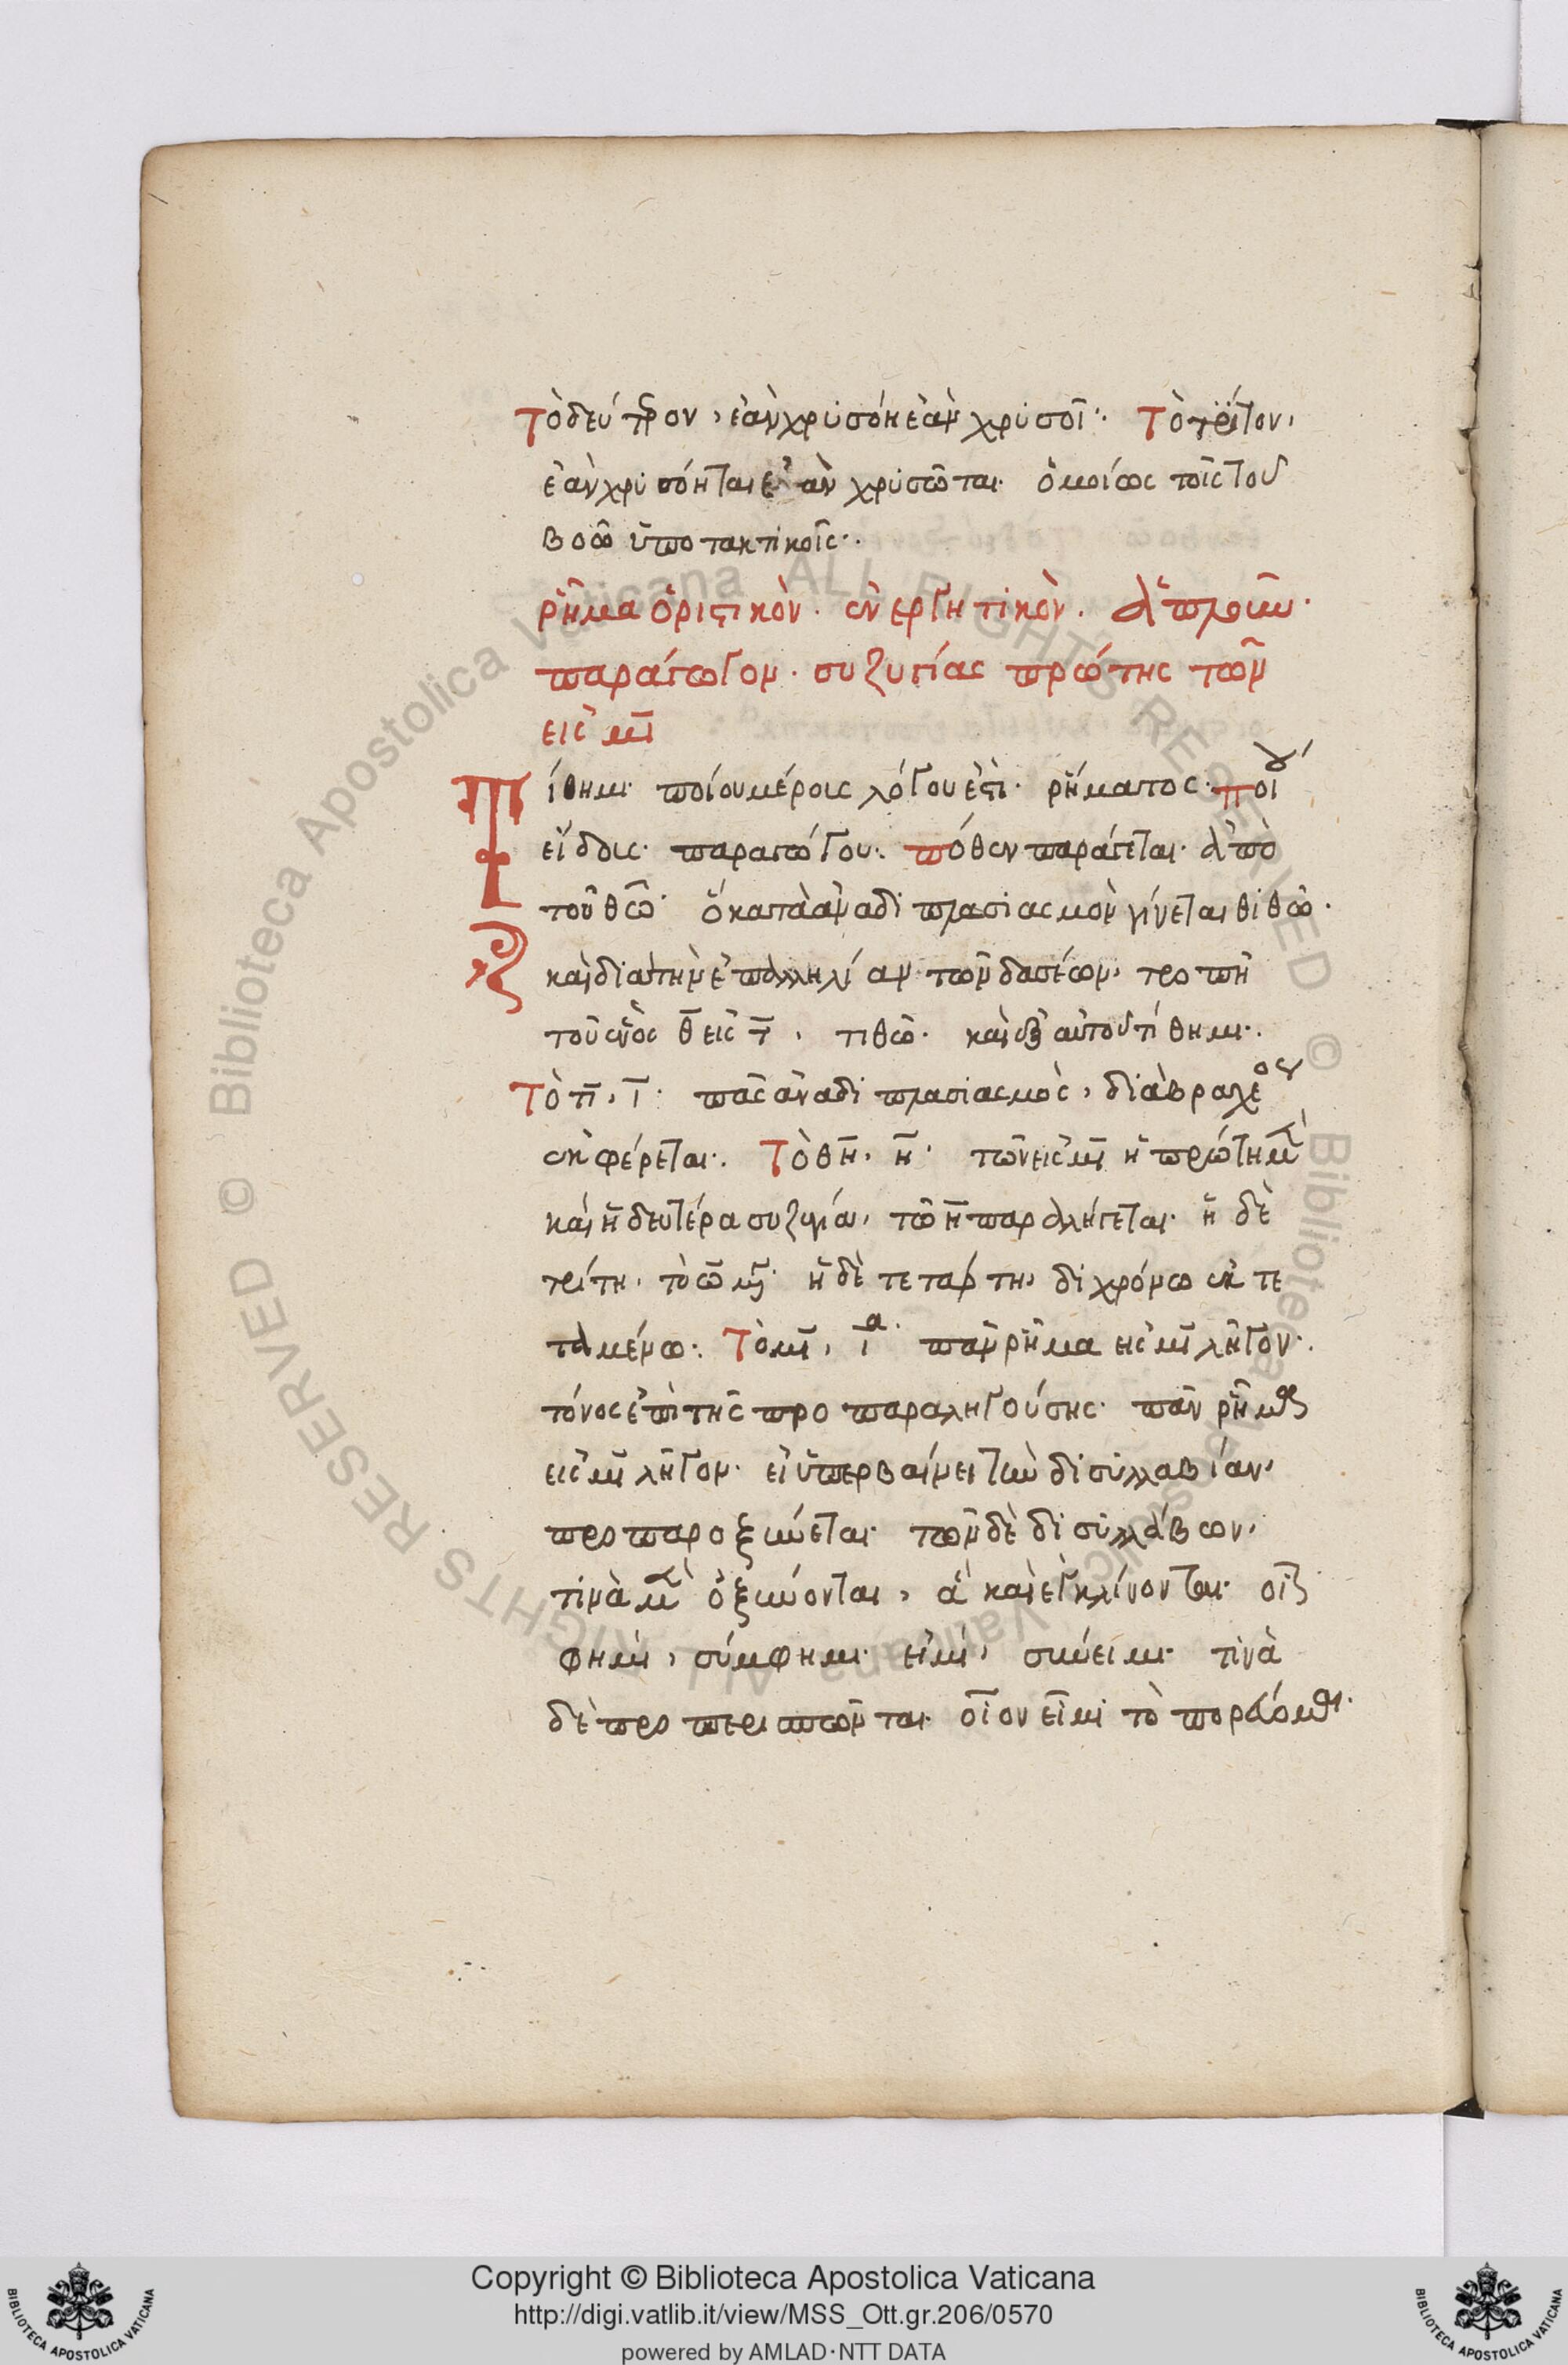 Τὸ δεύτερον, ἐὰν χρυσόῃ ἐὰν χρυσοῖ· Τὸ τρίτον,
ἐὰν χρυσόηται ἐὰν χρυσῶται· ὁμοίως τοῖς τοῦ
βοῶ ὑποτακτικοῖς·
ῥῆμα ὁριστικὸν· ἐνεργητικὸν· ἁπλοῦν·
παράγωγον· συζυγίας πρώτης τῶν
εἰς μι
Τίθημι· ποίου μέρους λόγου ἐστί· ῥήματος· ποίου
εἴδους· παραγώγου· πόθεν παράγεται· ἀπὸ
τοῦ θῶ· ὃ κατὰ ἀναδιπλασιασμὸν γίνεται θιθῶ·
καὶ διὰ τὴν ἐπαλληλίαν τῶν δασέων, τροπῇ
τοῦ ἑνὸς θ εἰς τ, τιθῶ· καὶ ἐξ αὐτοῦ τίθημι·
Τὸ τι, ι· πᾶς ἀναδιπλασιασμὸς, διὰ βραχέος
ἐκφέρεται· Τὸ θη, η· τῶν εἰς μι ἡ πρώτη μὲν
καὶ ἡ δευτέρα συζυγία, τῶ η παραλήγεται· ἡ δὲ
τρίτη, τὸ ω μέγα· ἡ δὲ τετάρτη, διχρόνω ἐκτε
ταμένω· Τὸ μι, ι· πᾶν ῥῆμα εἰς μι λῆγον·
τόνος ἐπὶ τῆς προπαραληγούσης· πᾶν ῥῆμα
εἰς μι λῆγον· εἰ ὑπερβαίνει τὴν δισυλλαβίαν,
προπαροξύνεται· τῶν δὲ δισυλλάβων,
τινὰ μὲν ὀξύνονται, ἃ καὶ ἐγκλίνονται· οἷον
φημί, σύμφημι· εἰμί, σύνειμι· τινὰ
δὲ προπερισπῶνται· οἷον εἶμι τὸ πορεύομαι·
Copyright © Biblioteca Apostolica Vaticana
http://digi.vatlib.it/view/MSS_Ott.gr.206/0570
powered by AMLAD·NTT DATA